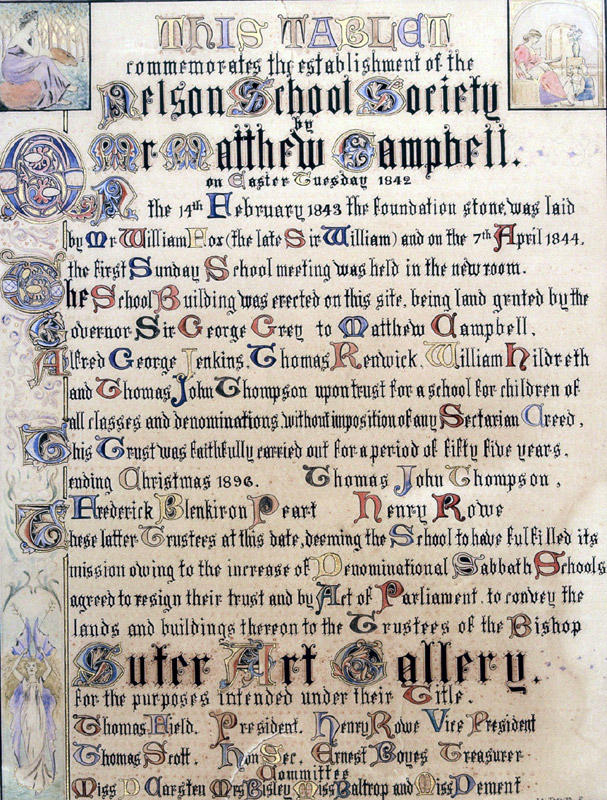 THIS TABLET
commemorates the establishment of the
Nelson School Society
by
Mr Matthew Campbell.
on Easter Tuesday 1842
On the 14th February 1843 the foundation stone was laid
by Mr William Fox (the late Sir William) and on the 7th April 1844,
the first Sunday School meeting was held in the new room.
The School Building was erected on this site, being land grnted by the
Governor Sir George Grey to Matthew Campbell,
Alfred George Jenkins, Thomas Renwick, William Hildreth
and Thomas John Thompson upon trust for a school for children of
all classes and denominations without imposition of any Sectarian Creed,
This Trust was faithfully carried out for a period of fifty five years,
ending Christmas 1896. Thomas John Thompson,
Frederick Blenkiron Peart Henry Rowe
These latter Trustees at this date, deeming the School to have fulfilled its
mission owing to the increase of Denominational Sabbath Schools
agreed to resign their trust and by Act of Parliament, to convey the
lands and buildings thereon to the Trustees of the Bishop
Suter Art Gallery.
for the purposes intended under their Title.
Thomas Field. President. Henry Rowe Vice President
Thomas Scott. Hon Sec. Ernest Boyes Treasurer
Committee
Miss D Carsten Mrs Bisley Miss Baltrop and Miss Dement